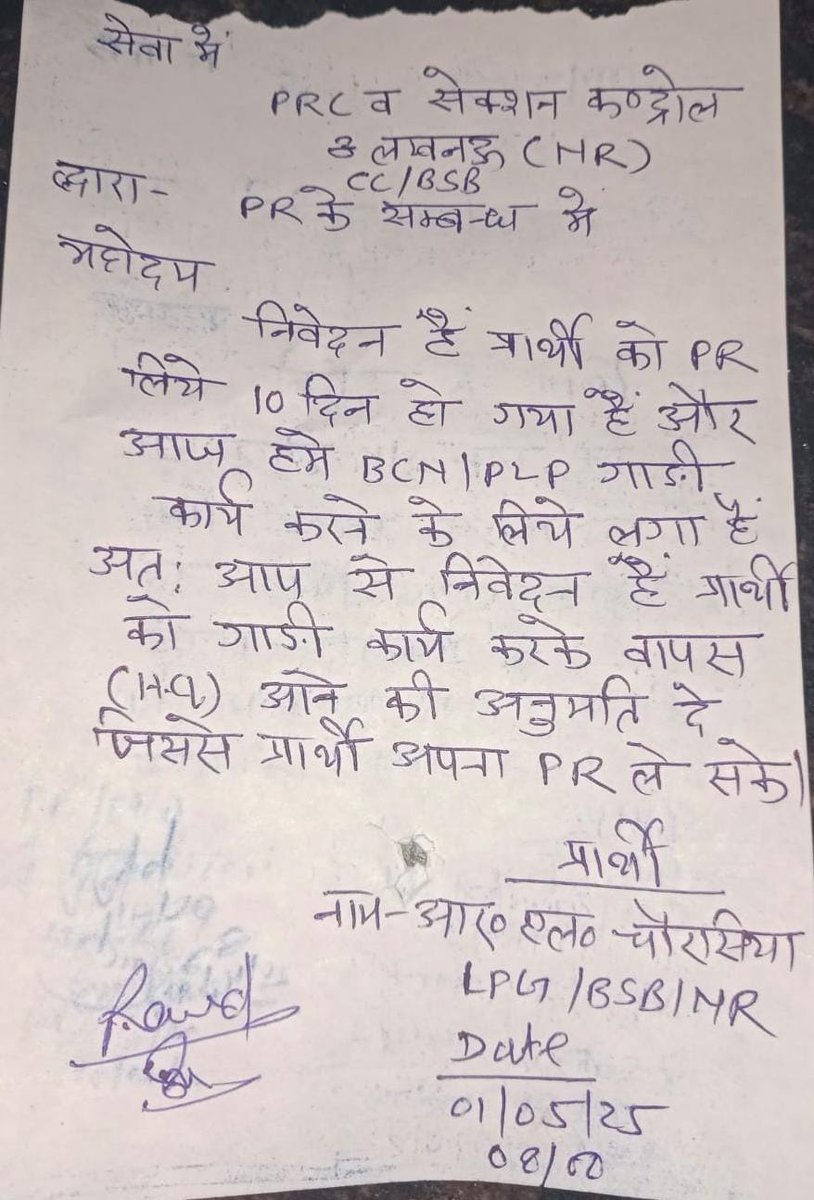 सेवा में
PRC व सेक्शन कण्ट्रोल
लखनऊ (NR)
द्वारा- CC/BSB
PR के सम्बन्ध में
महोदय
निवेदन हैं प्रार्थी को PR
लिये 10 दिन हो गया हैं और
आज हमे BCN/PLP गाड़ी
कार्य करने के लिये लगा हैं
अतः आप से निवेदन हैं प्रार्थी
को गाड़ी कार्य करके वापस
(H.Q) आने की अनुमति दे
जिससे प्रार्थी अपना PR ले सके।
प्रार्थी
नाम-आर० एल० चौरसिया
LPG/BSB/NR
Date
01/05/25